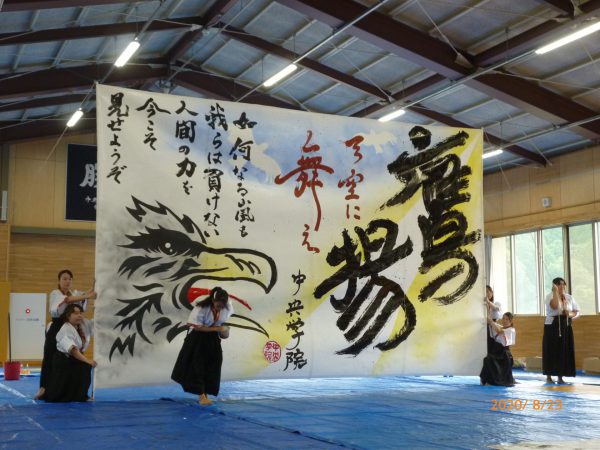 鷹揚
天空に
舞え
如何なる嵐も
我らは負けない
人間の力を
今こそ
見せようぞ
中央学院
2020/ 8/23